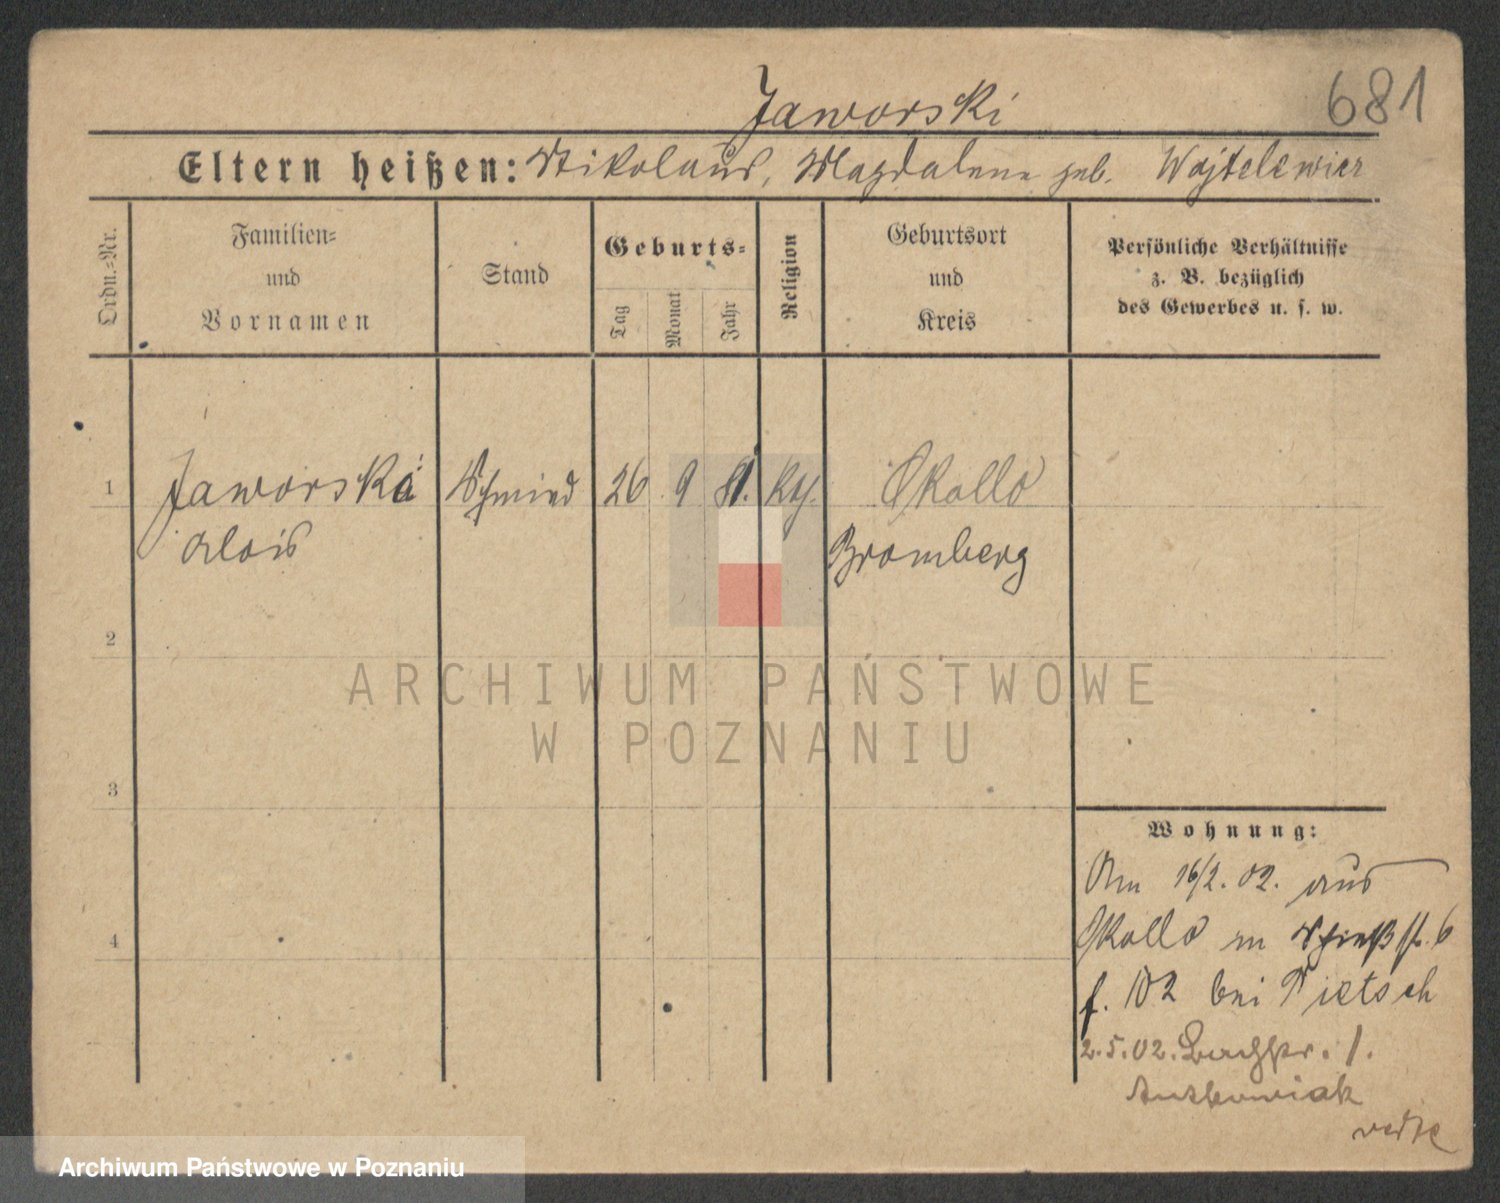 Jaworski
681
Eltern heißen: Nikolaus, Magdalena geb. Wojtelewicz
Ordn.-Nr.
Familien-
und
Vornamen
Stand
Geburts-
Tag
Monat
Jahr
Religion
Geburtsort
und
Kreis
Persönliche Verhältnisse
z. B. bezüglich
des Gewerbes u. s. w.
1 Jaworski Schmied 26. 9 81. kth. Okollo
Alois Bromberg
2
3
4
ARCHIWUM PAŃSTWOWE
W POZNANIU
Wohnung:
Am 16/2. 02. aus
Okollo in Schießstr. 6
f. 102 bei Pietsch
2.5.02. 1.
Antkowiak
Archiwum Państwowe w Poznaniu